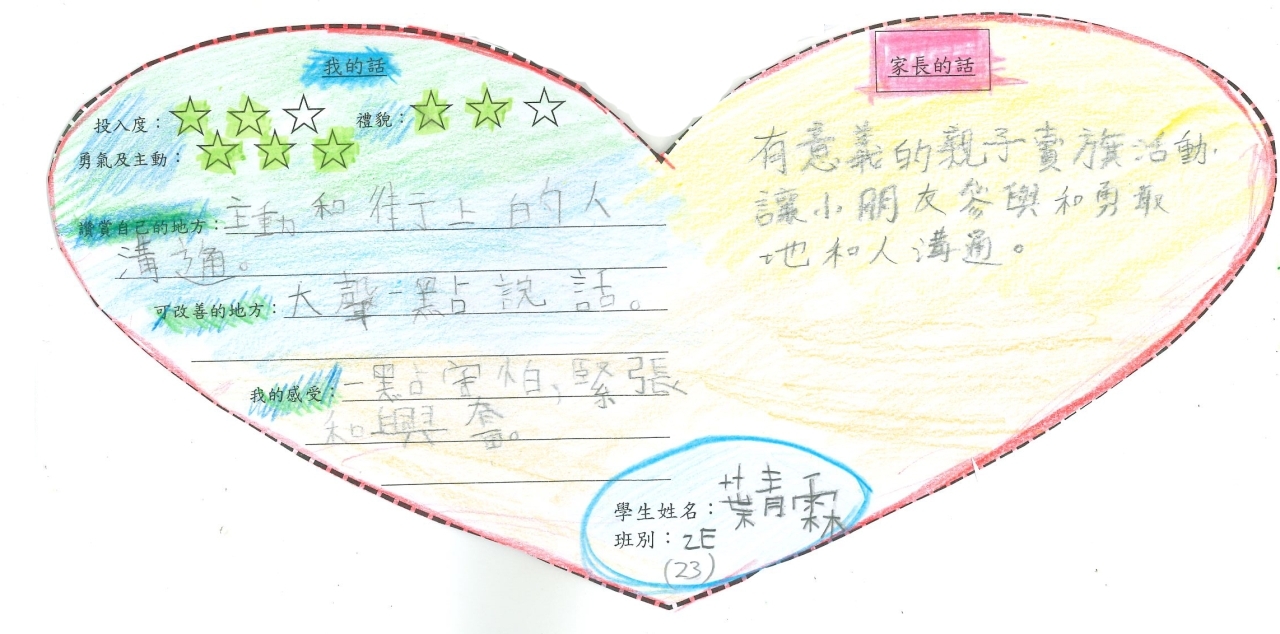 我的話
投入度：☆☆☆ 禮貌：☆☆☆
勇氣及主動：☆☆☆
讚賞自己的地方：主動和街上的人
溝通。
可改善的地方：大聲一點說話。
我的感受：一點害怕,緊張
和興奮。
家長的話
有意義的親子賣旗活動.
讓小朋友參與和勇敢
地和人溝通。
學生姓名：葉青霖
班別：2E
(23)